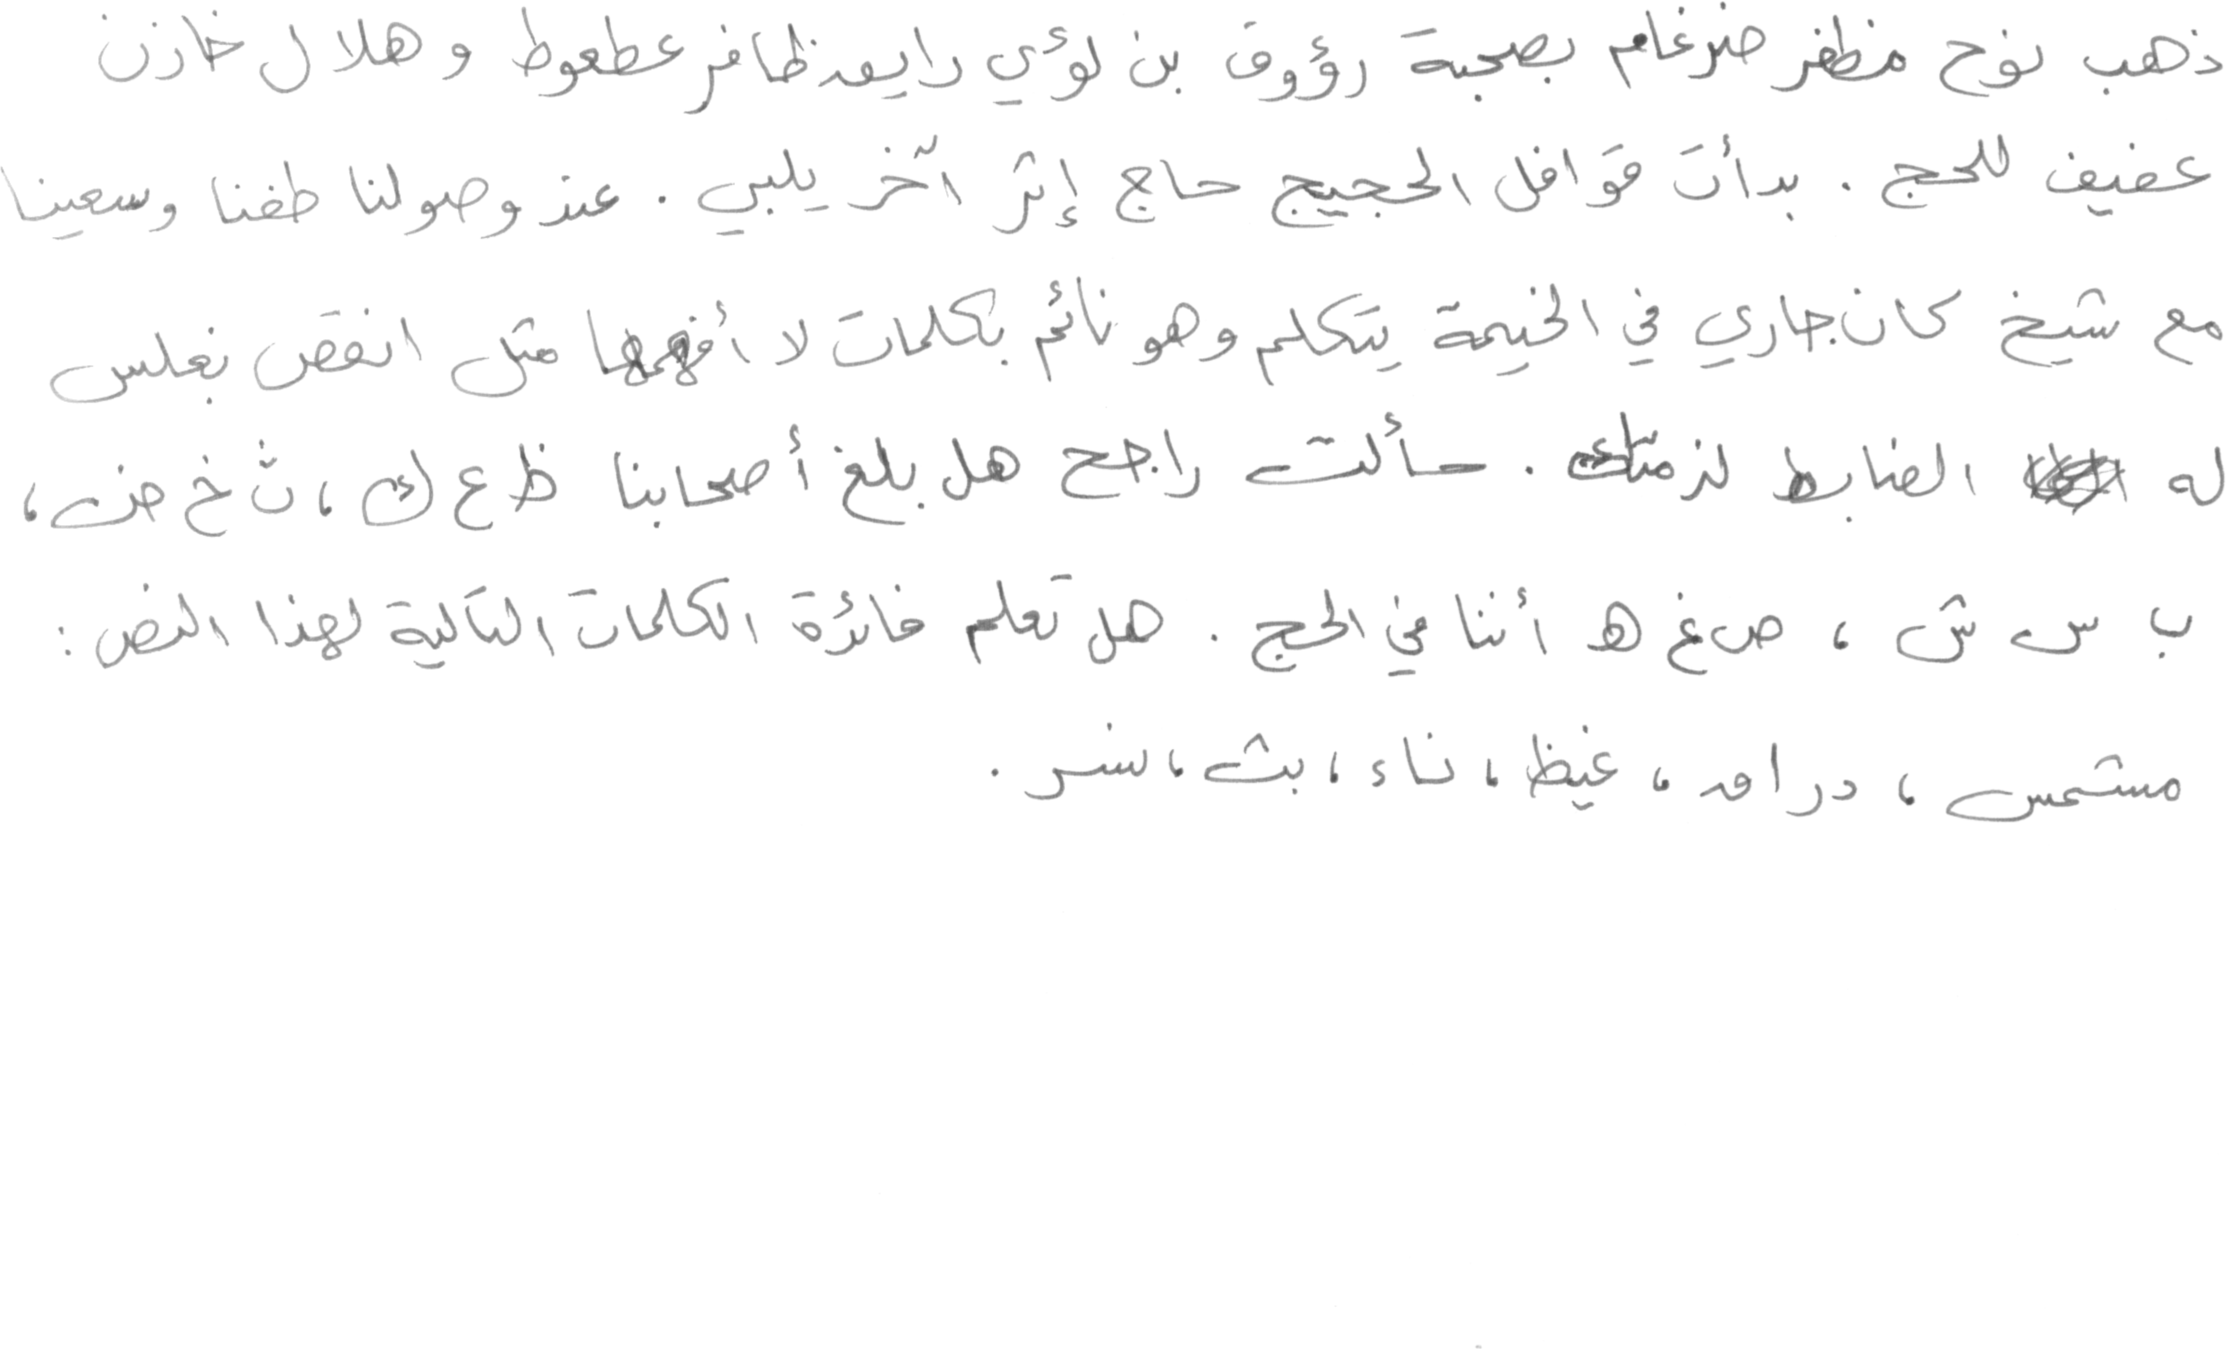 ذهب نوح مظفر ضرغام بصحبة رؤوف بن لؤي رايق ظافر عطعوط و هلال خازن
عفيف للحج . بدأت قوافل الحجيج حاج إثر آخر يلبي . عند وصولنا طفنا وسعينا
مع شيخ كان جاري في الخيمة يتكلم وهو نائم بكلمات لا أفهمها مثل انقض بغلس
له الضابط لزمتك . سألت راجح هل بلغ أصحابنا ظ ع ك ، ث خ ض ،
ب س ش ، ص غ ه أننا في الحج . هل تعلم فائدة الكلمات التالية لهذا النص :
مشمس ، دراق ، غيظ ، ناء ، بث ، نسر .